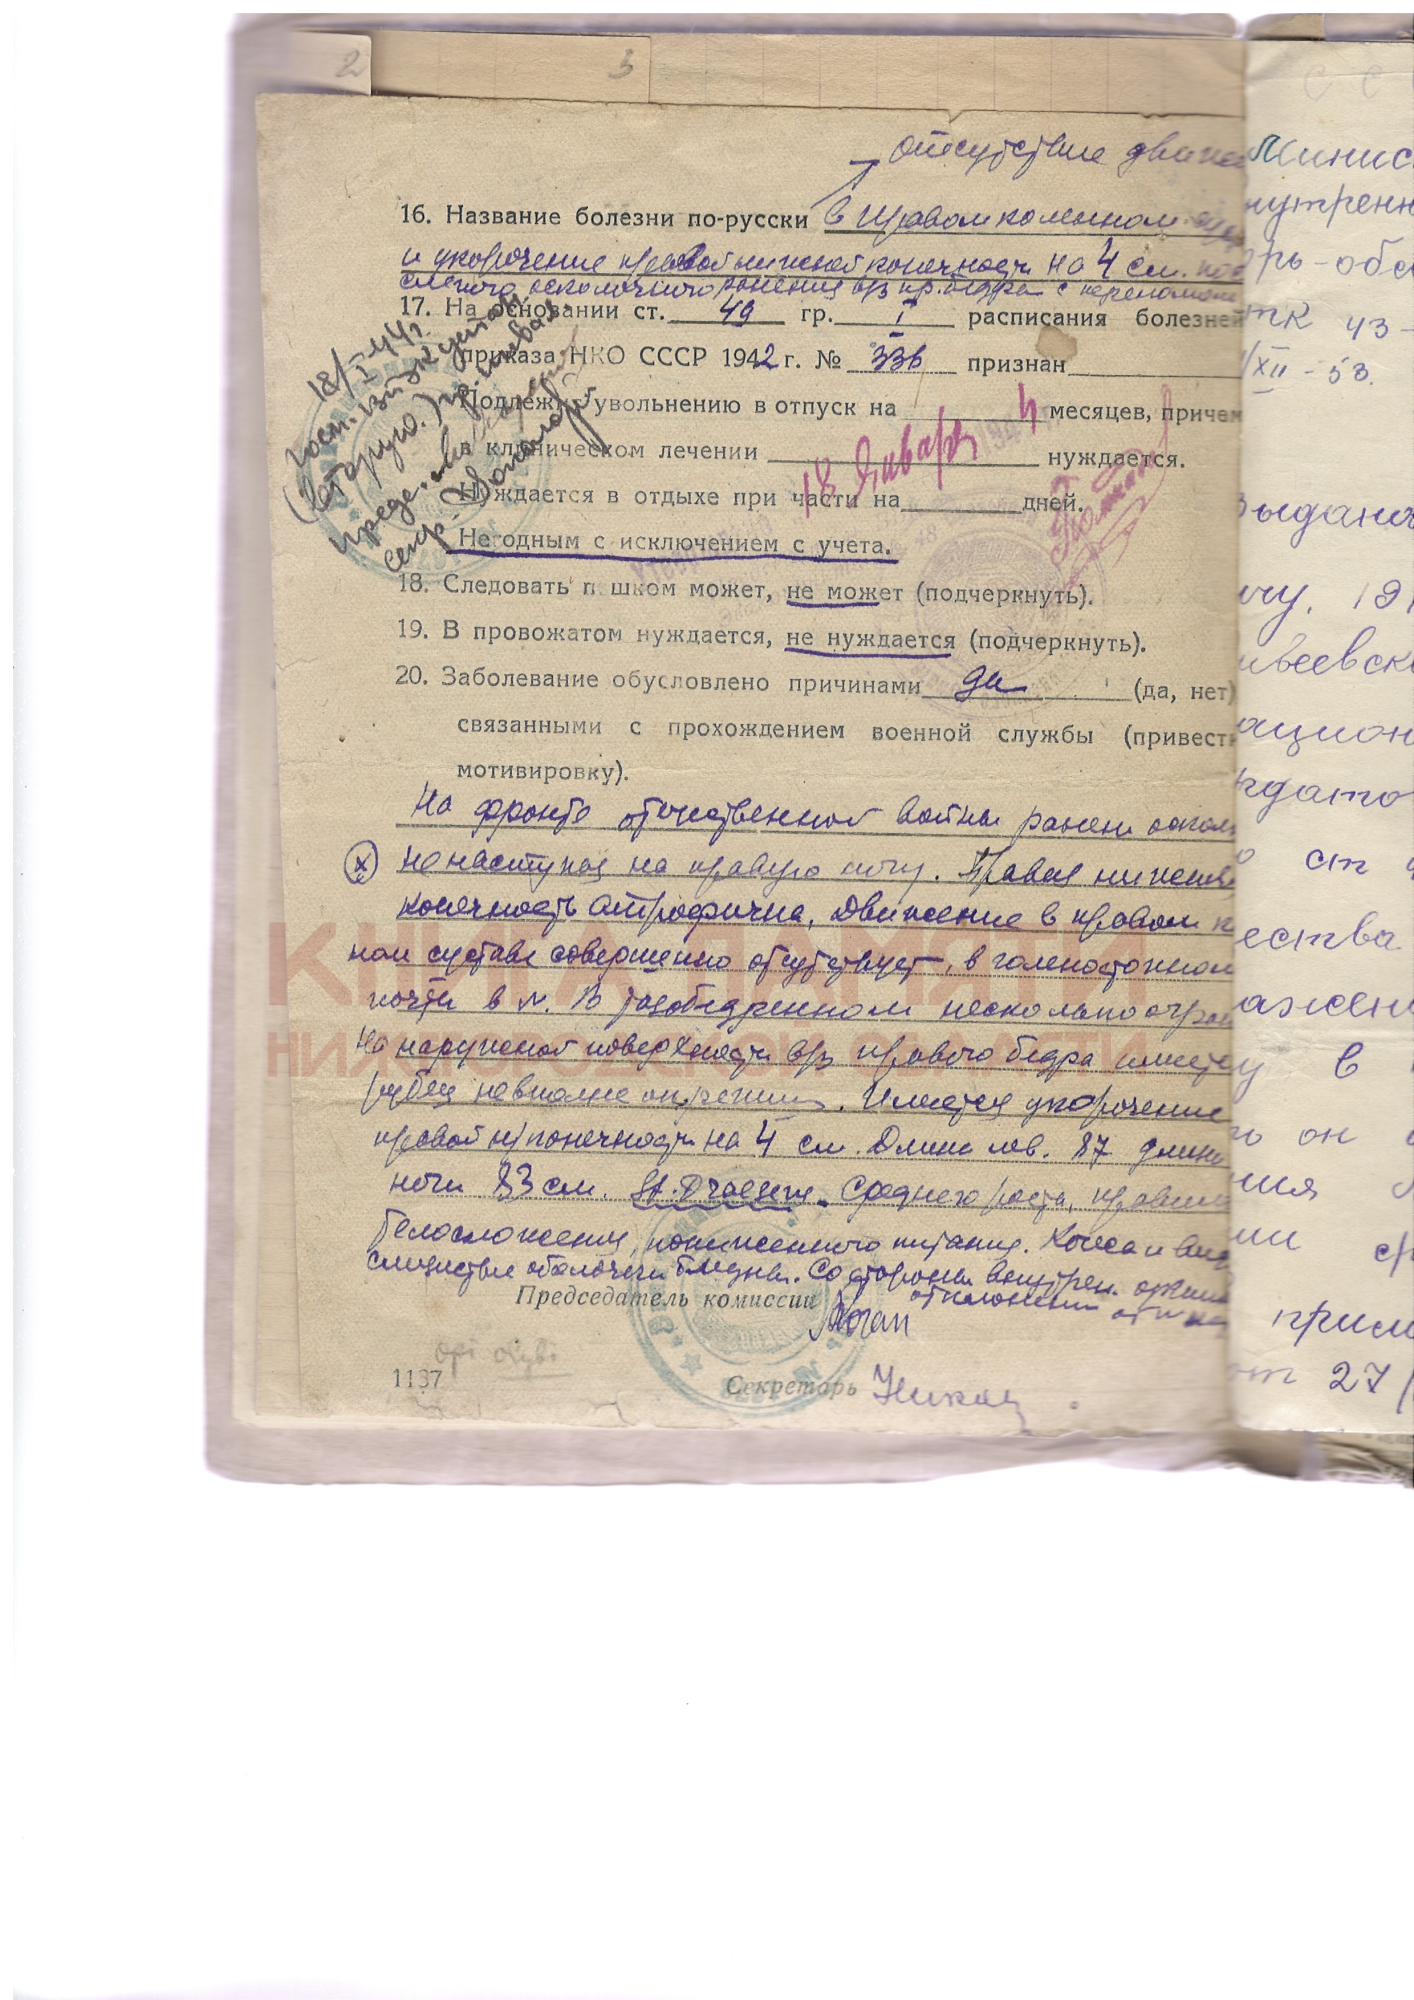 2
3
отсутствие движе
16. Название болезни по-русски в правом коленном
и укорочение правой нижней конечности на 4 см. пос
слепого осколочного ранения в/з пр. бедра с переломом
17. На основании ст. 49 гр. I расписания болезней
приказа НКО СССР 1942 г. № 336 признан
Подлежит увольнению в отпуск на месяцев, причем
в клиническом лечении нуждается.
Нуждается в отдыхе при части на дней.
18 Января
Негодным с исключением с учета.
18. Следовать пешком может, не может (подчеркнуть).
19. В провожатом нуждается, не нуждается (подчеркнуть).
20. Заболевание обусловлено причинами да (да, нет)
связанными с прохождением военной службы (привести
мотивировку).
18/I-44 г.
(вторую.)
пред.
секр.
На фронте отечественной войны ранен оскол
не наступая на правую ногу. Правая нижняя
конечность атрофична, движение в правом к
ном суставе совершенно отсутствует, в голеностопном
почти в N. В тазобедренном несколько огран
На наружной поверхности в/з правого бедра имеется
рубец не вполне окрепший. Имеется укорочение
правой н/конечности на 4 см. Длина лев. 87 длина
ноги 83 см. St. Praesens. Среднего роста, правильн
телосложения, пониженного питания. Кожа и вид
слизистые оболочки бледны. Со стороны внутрен. органо
отклонений от н
Председатель комиссии Коган
1137
Секретарь
Минис
нутренн
рь-обс
тк 43-
/XII-53.
Выдана
ичу, 191
ивеевск
ацион
ст
ества
ажен
в
он
ния
ии
прим
от 27/
КНИГА ПАМЯТИ
НИЖЕГОРОДСКОЙ ОБЛАСТИ